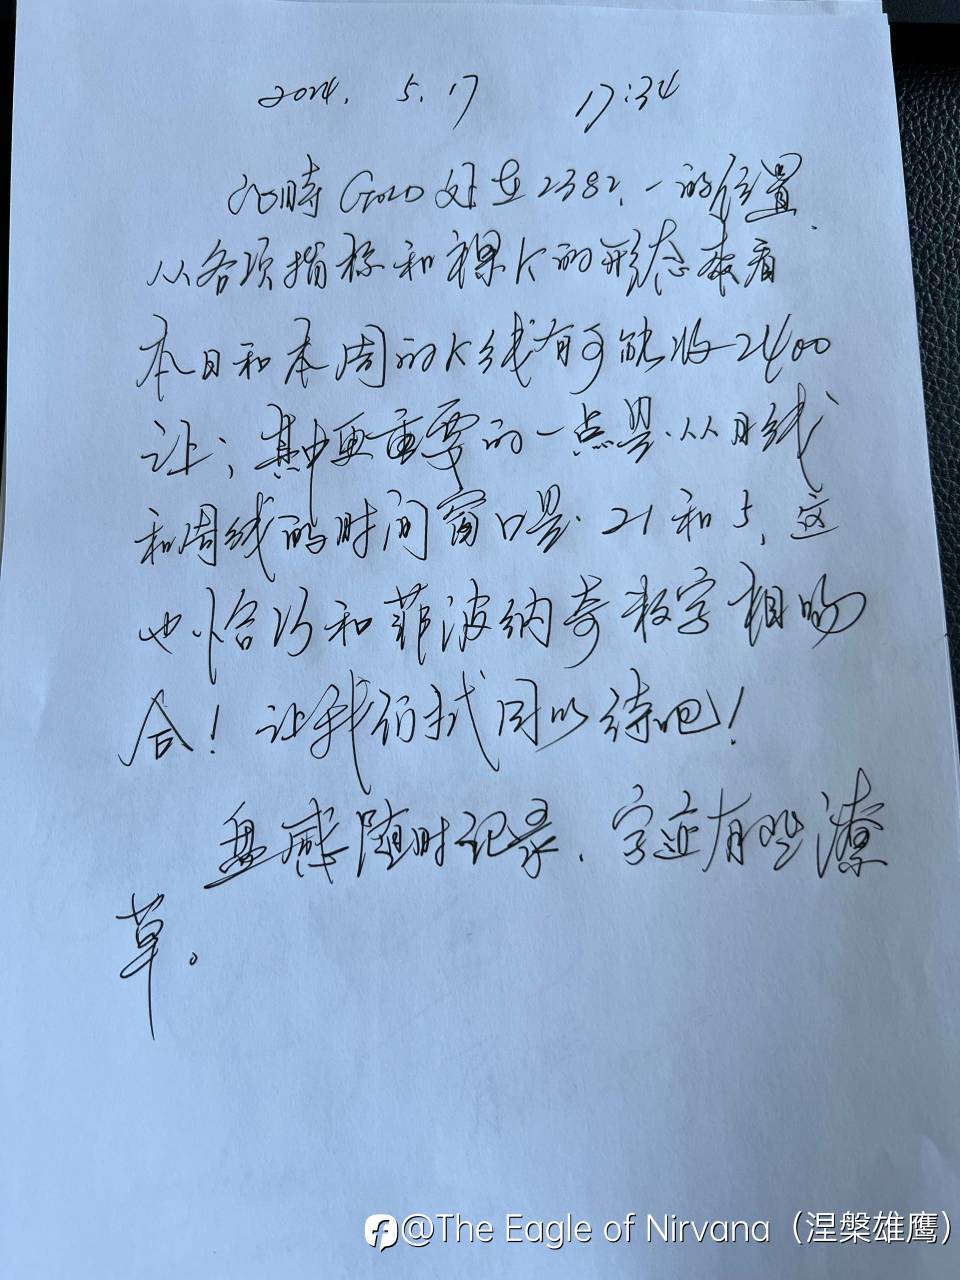 2024. 5. 17 17:34
此時 GOLD 处在2382.一的位置.
从各项指标和裸K的形态来看
本日和本周的K线有可能收2400
让；其中更重要的一点是.从日线
和周线的时间窗口是.21和5，这
也恰巧和菲波纳奇数字相吻
合！让我们拭目以待吧！
盘感随时记录.字迹有些潦
草。
@The Eagle of Nirvana（涅槃雄鹰）